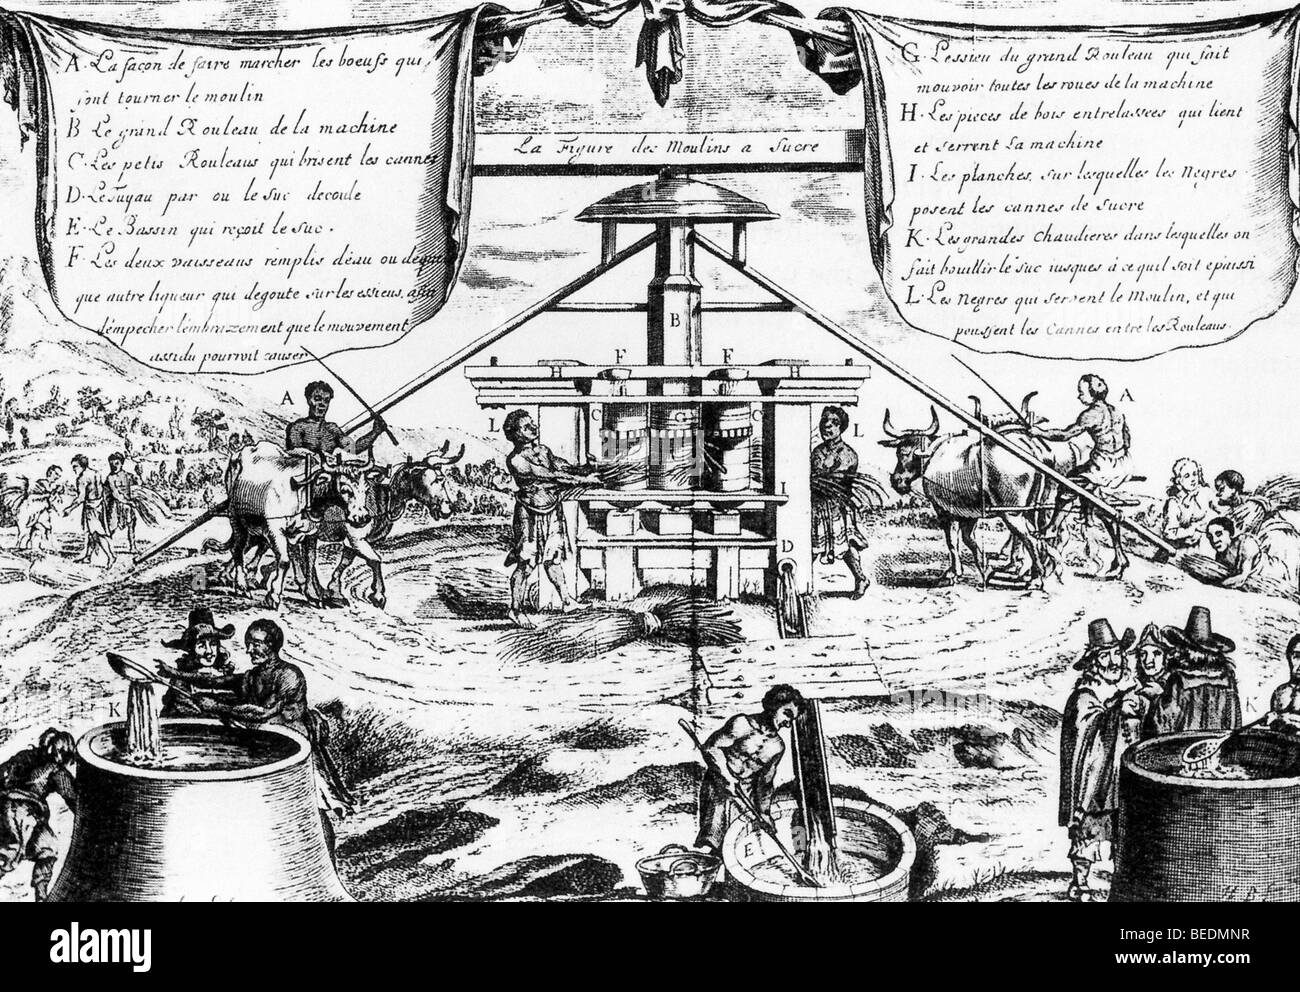 A. La façon de faire marcher les boeufs qui
font tourner le moulin
B Le grand Rouleau de la machine
C. Les petis Rouleaus qui brisent les cannes
D. Le Tuyau par ou le suc decoule
E. Le Bassin qui reçoit le suc.
F. Les deux vaisseaus remplis d'eau ou de quel
que autre liqueur qui degoute sur les essieus, afin
d'empecher l'embrazement que le mouvement
assidu pourroit causer
La Figure des Moulins a Sucre
G. L'essieu du grand Rouleau qui fait
mouvoir toutes les roues de la machine
H. Les pieces de bois entrelassees qui lient
et serrent la machine
I. Les planches, sur lesquelles les Negres
posent les cannes de sucre
K. Les grandes Chaudieres dans lesquelles on
fait bouillir le suc iusques à ce qu'il soit epaissi
L. Les Negres qui servent le Moulin, et qui
poussent les Cannes entre les Rouleaus.
B
F F
H H
A A
L C G C L
I
D
K K
E
alamy stock photo
BEDMNR
www.alamy.com